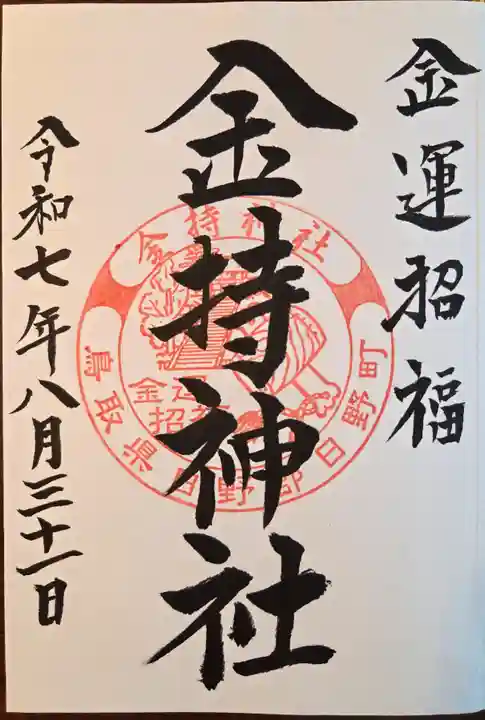 金運招福
金持神社
令和七年八月三十一日
金持神社
鳥取県日野郡日野町